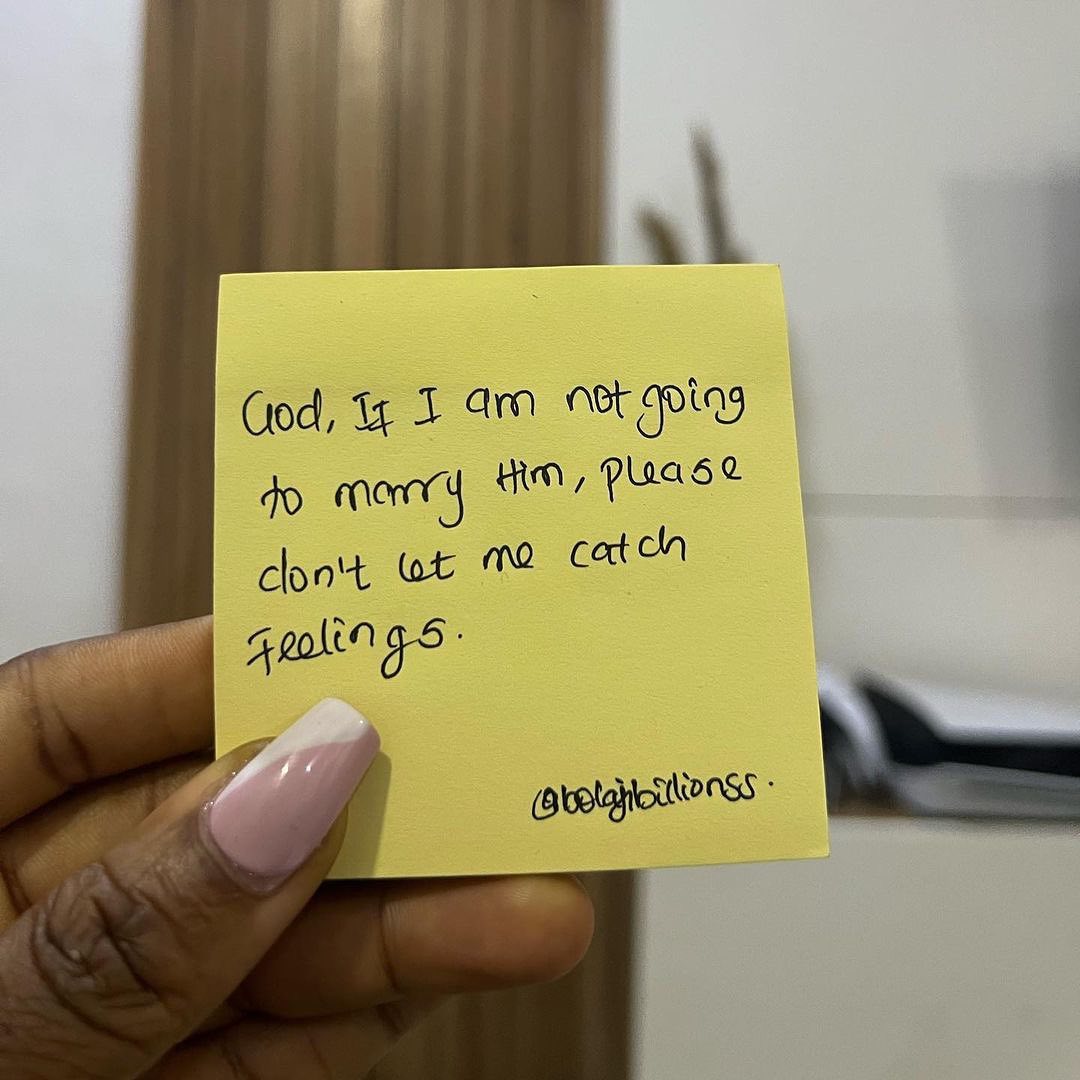 God, If I am not going
to marry Him, please
don't let me catch
Feelings.
@bolajibillionss.